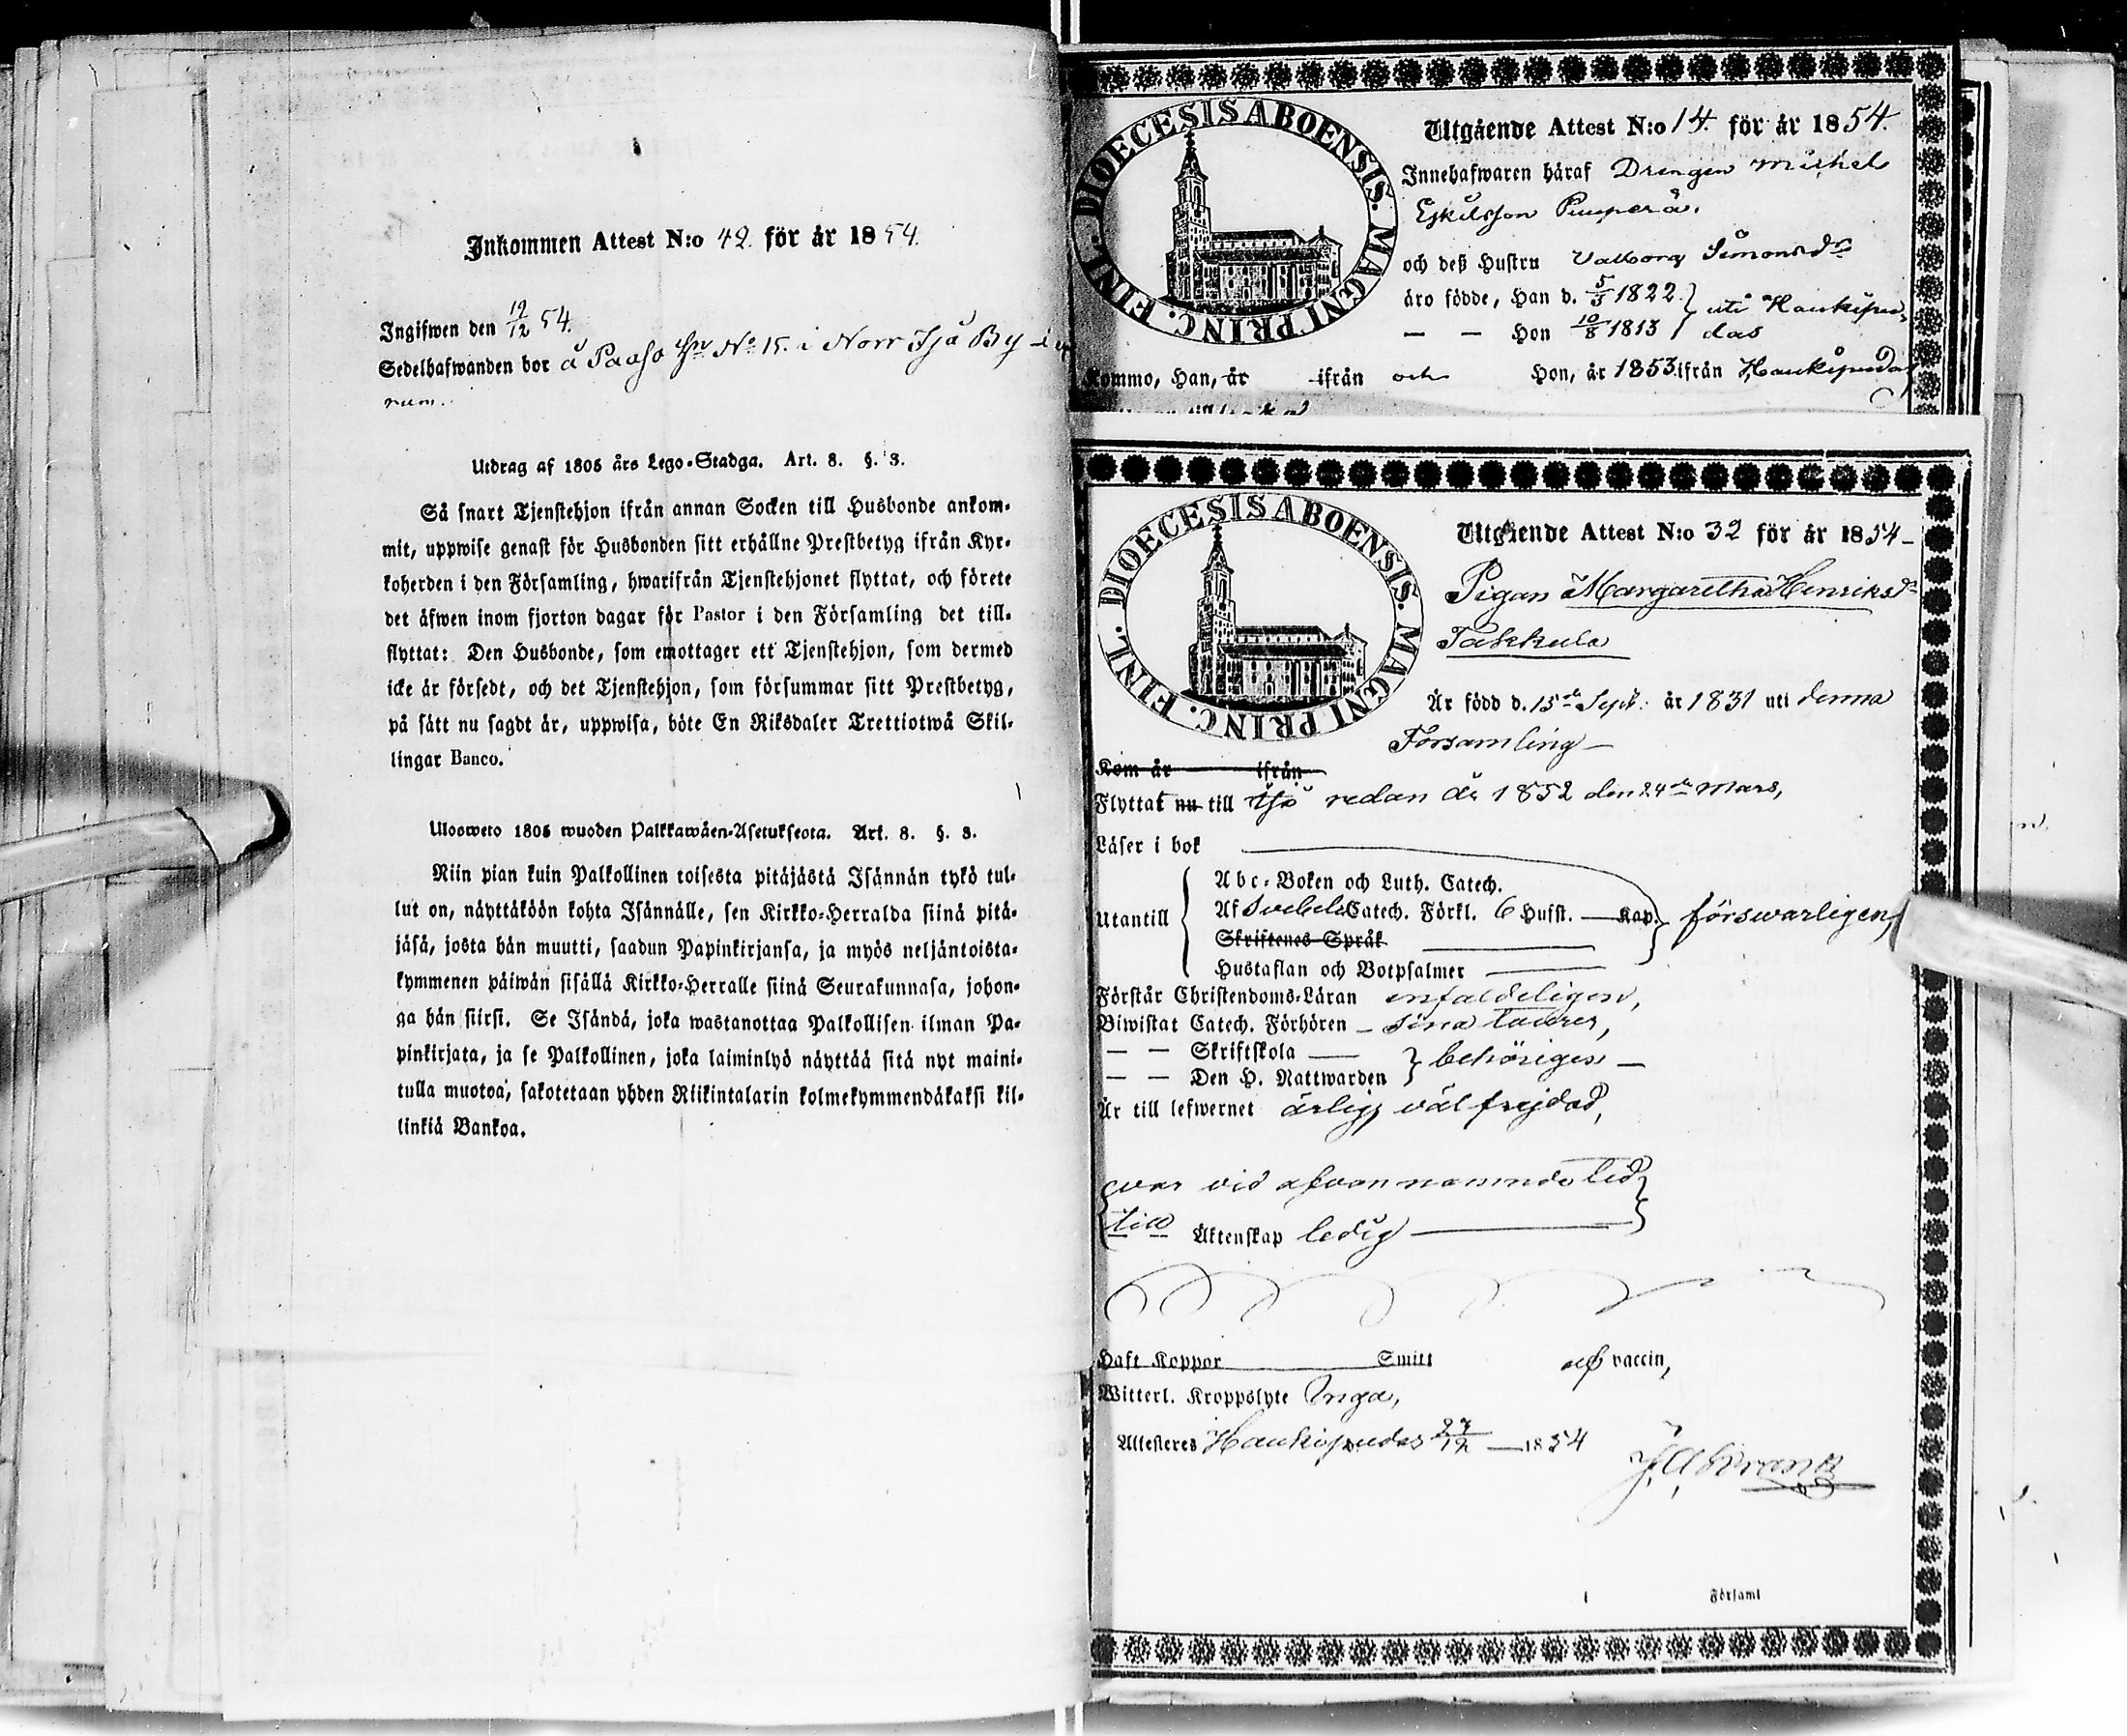 Inkommen Attest N:o 42. för år 1854.
Ingifwen den 19/12 54.
Sedelhafwanden bor å Paaso hn No 15. i Norr Ijå By
rum.
Utdrag af 1805 års Lego-Stadga. Art. 8. §. 3.
Så snart Tjenstehjon ifrån annan Socken till Husbonde ankom-
mit, uppwise genast för Husbonden sitt erhållne Prestbetyg ifrån Kyr-
koherden i den Församling, hwarifrån Tjenstehjonet flyttat, och förete
det äfwen inom fjorton dagar för Pastor i den Församling det till-
flyttat: Den Husbonde, som emottager ett Tjenstehjon, som dermed
icke är försedt, och det Tjenstehjon, som försummar sitt Prestbetyg,
på sätt nu sagdt är, uppwisa, böte En Riksdaler Trettiotwå Skil-
lingar Banco.
Uloosweto 1805 wuoden Palkkawäen-Asetuksesta. Art. 8. §. 3.
Niin pian kuin Palkollinen toisesta pitäjästä Isännän tykö tul-
lut on, näyttäköön kohta Isännälle, sen Kirkko-Herralda siinä pitä-
jäsä, josta hän muutti, saadun Papinkirjansa, ja myös neljäntoista-
kymmenen päiwän sisällä Kirkko-Herralle siinä Seurakunnasa, johon-
ga hän siirsi. Se Isändä, joka wastanottaa Palkollisen ilman Pa-
pinkirjata, ja se Palkollinen, joka laiminlyö näyttää sitä nyt maini-
tulla muotoa, sakotetaan yhden Riikintalarin kolmekymmendäkaksi kil-
linkiä Bankoa.
DIOECESIS ABOENSIS. MAGNI PRINC. FINL.
Utgående Attest N:o 14. för år 1854.
Innehafwaren häraf Drengen Michel
Eskilsson Pumperä.
och deß Hustru Valborg Simonsdr
äro födde, Han d. 5/5 1822. } uti Haukipu-
— — Hon 10/8 1813 } das
Kommo, Han, år ifrån och Hon, år 1853 ifrån Haukipudas
DIOECESIS ABOENSIS. MAGNI PRINC. FINL.
Utgående Attest N:o 32 för år 1854-
Pigan Margaretha Henriksdr
Takkula
Är född d. 15de Sept. år 1831 uti denna
Församling —
Kom år ifrån
Flyttat nu till Ijo redan år 1852 den 24de Mars,
Läser i bok
Abc-Boken och Luth. Catech.
Utantill { Af Svebeli Catech. Förkl. 6 Hufst. — Kap. } försvarligen,
Skriftenes Språk
Hustaflan och Botpsalmer
Förstår Christendoms-Läran enfaldeligen,
Biwistat Catech. Förhören - sina tourer,
— — Skriftskola —
— — Den H. Nattwarden } behörigen —
Är till lefwernet ärlig, väl frejdad,
var vid ofvannämnde tid
till Äktenskap ledig
Haft Koppor Smitt af vaccin,
Witterl. Kroppslyte Inga,
Attesteres Haukipudas 27/12 — 1854
Församl